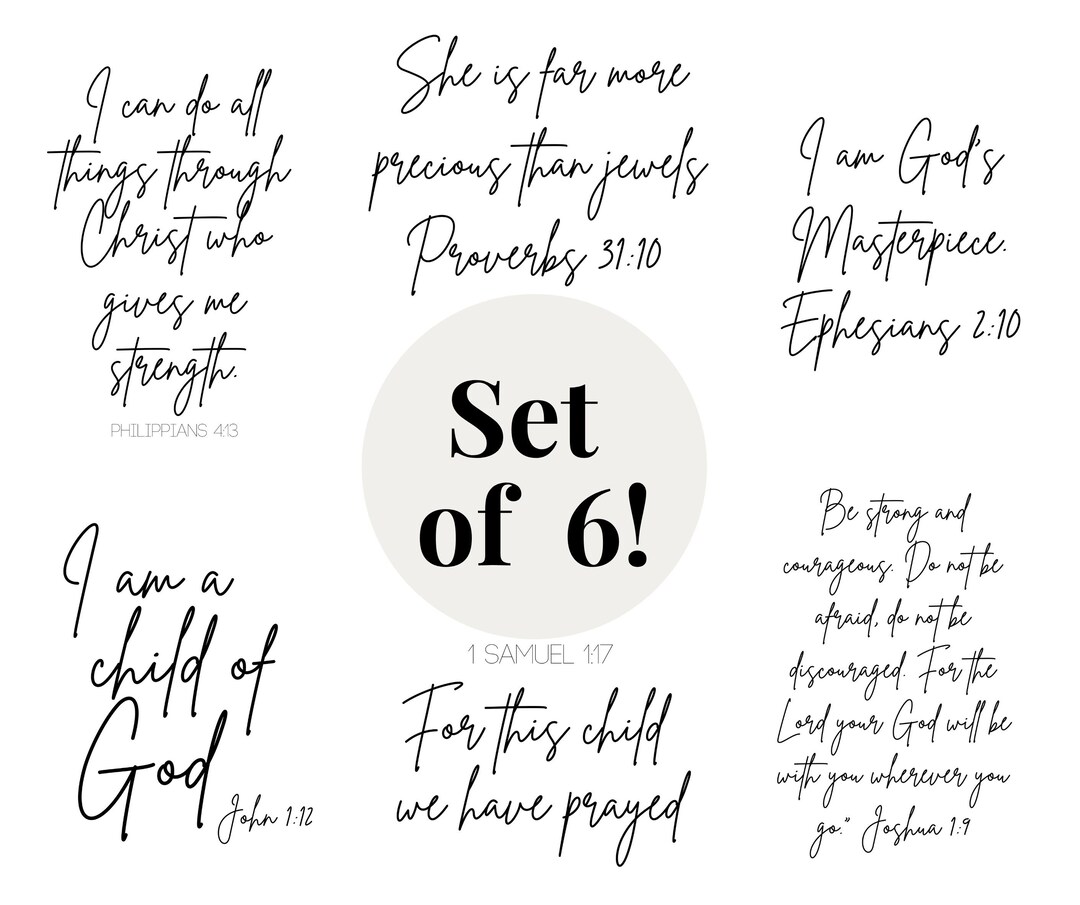 I can do all
things through
Christ who
gives me
strength.
PHILIPPIANS 4:13
She is far more
precious than jewels
Proverbs 31:10
I am God's
Masterpiece.
Ephesians 2:10
Set
of 6!
I am a
child of
God
John 1:12
1 SAMUEL 1:17
For this child
we have prayed
Be strong and
courageous. Do not be
afraid, do not be
discouraged. For the
Lord your God will be
with you wherever you
go." Joshua 1:9